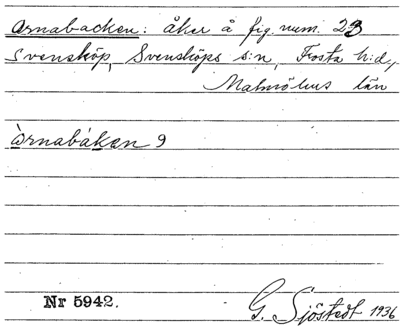 Ornabacken: åker å fig. num. 23
Svensköp, Svensköps s:n, Frosta h:d,
Malmöhus län
ò̀rnabákan 9
Nr 5942.
G. Sjöstedt 1936